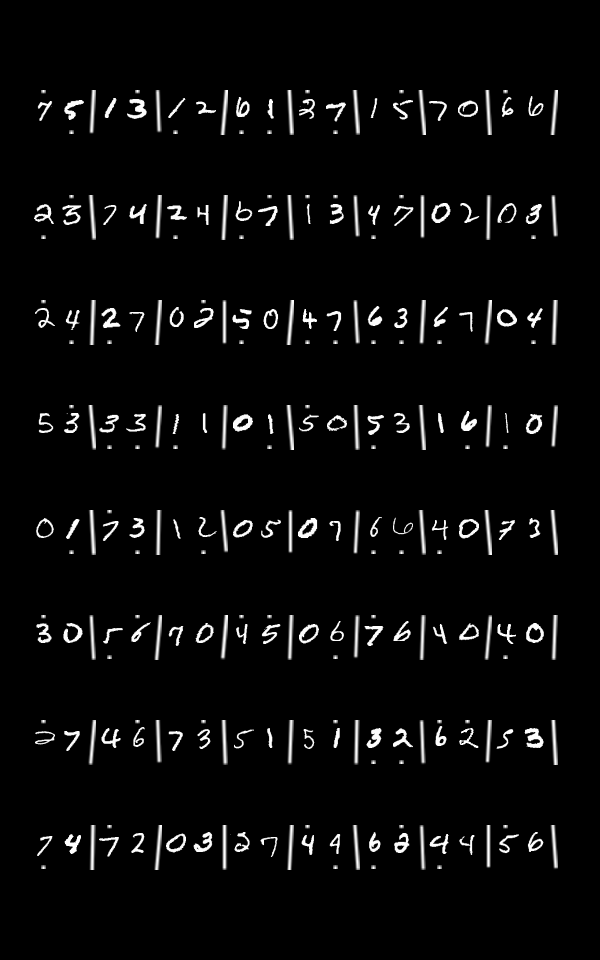 7 5 | 1 3 | 1 2 | 6 1 | 2 7 | 1 5 | 7 0 | 6 6 |
2 3 | 7 4 | 2 4 | 6 7 | 1 3 | 4 7 | 0 2 | 0 3 |
2 4 | 2 7 | 0 2 | 5 0 | 4 7 | 6 3 | 6 7 | 0 4 |
5 3 | 3 3 | 1 1 | 0 1 | 5 0 | 5 3 | 1 6 | 1 0 |
0 1 | 7 3 | 1 2 | 0 5 | 0 7 | 6 6 | 4 0 | 7 3 |
3 0 | 5 6 | 7 0 | 4 5 | 0 6 | 7 6 | 4 0 | 4 0 |
2 7 | 4 6 | 7 3 | 5 1 | 5 1 | 3 2 | 6 2 | 5 3 |
7 4 | 7 2 | 0 3 | 2 7 | 4 4 | 6 2 | 4 4 | 5 6 |